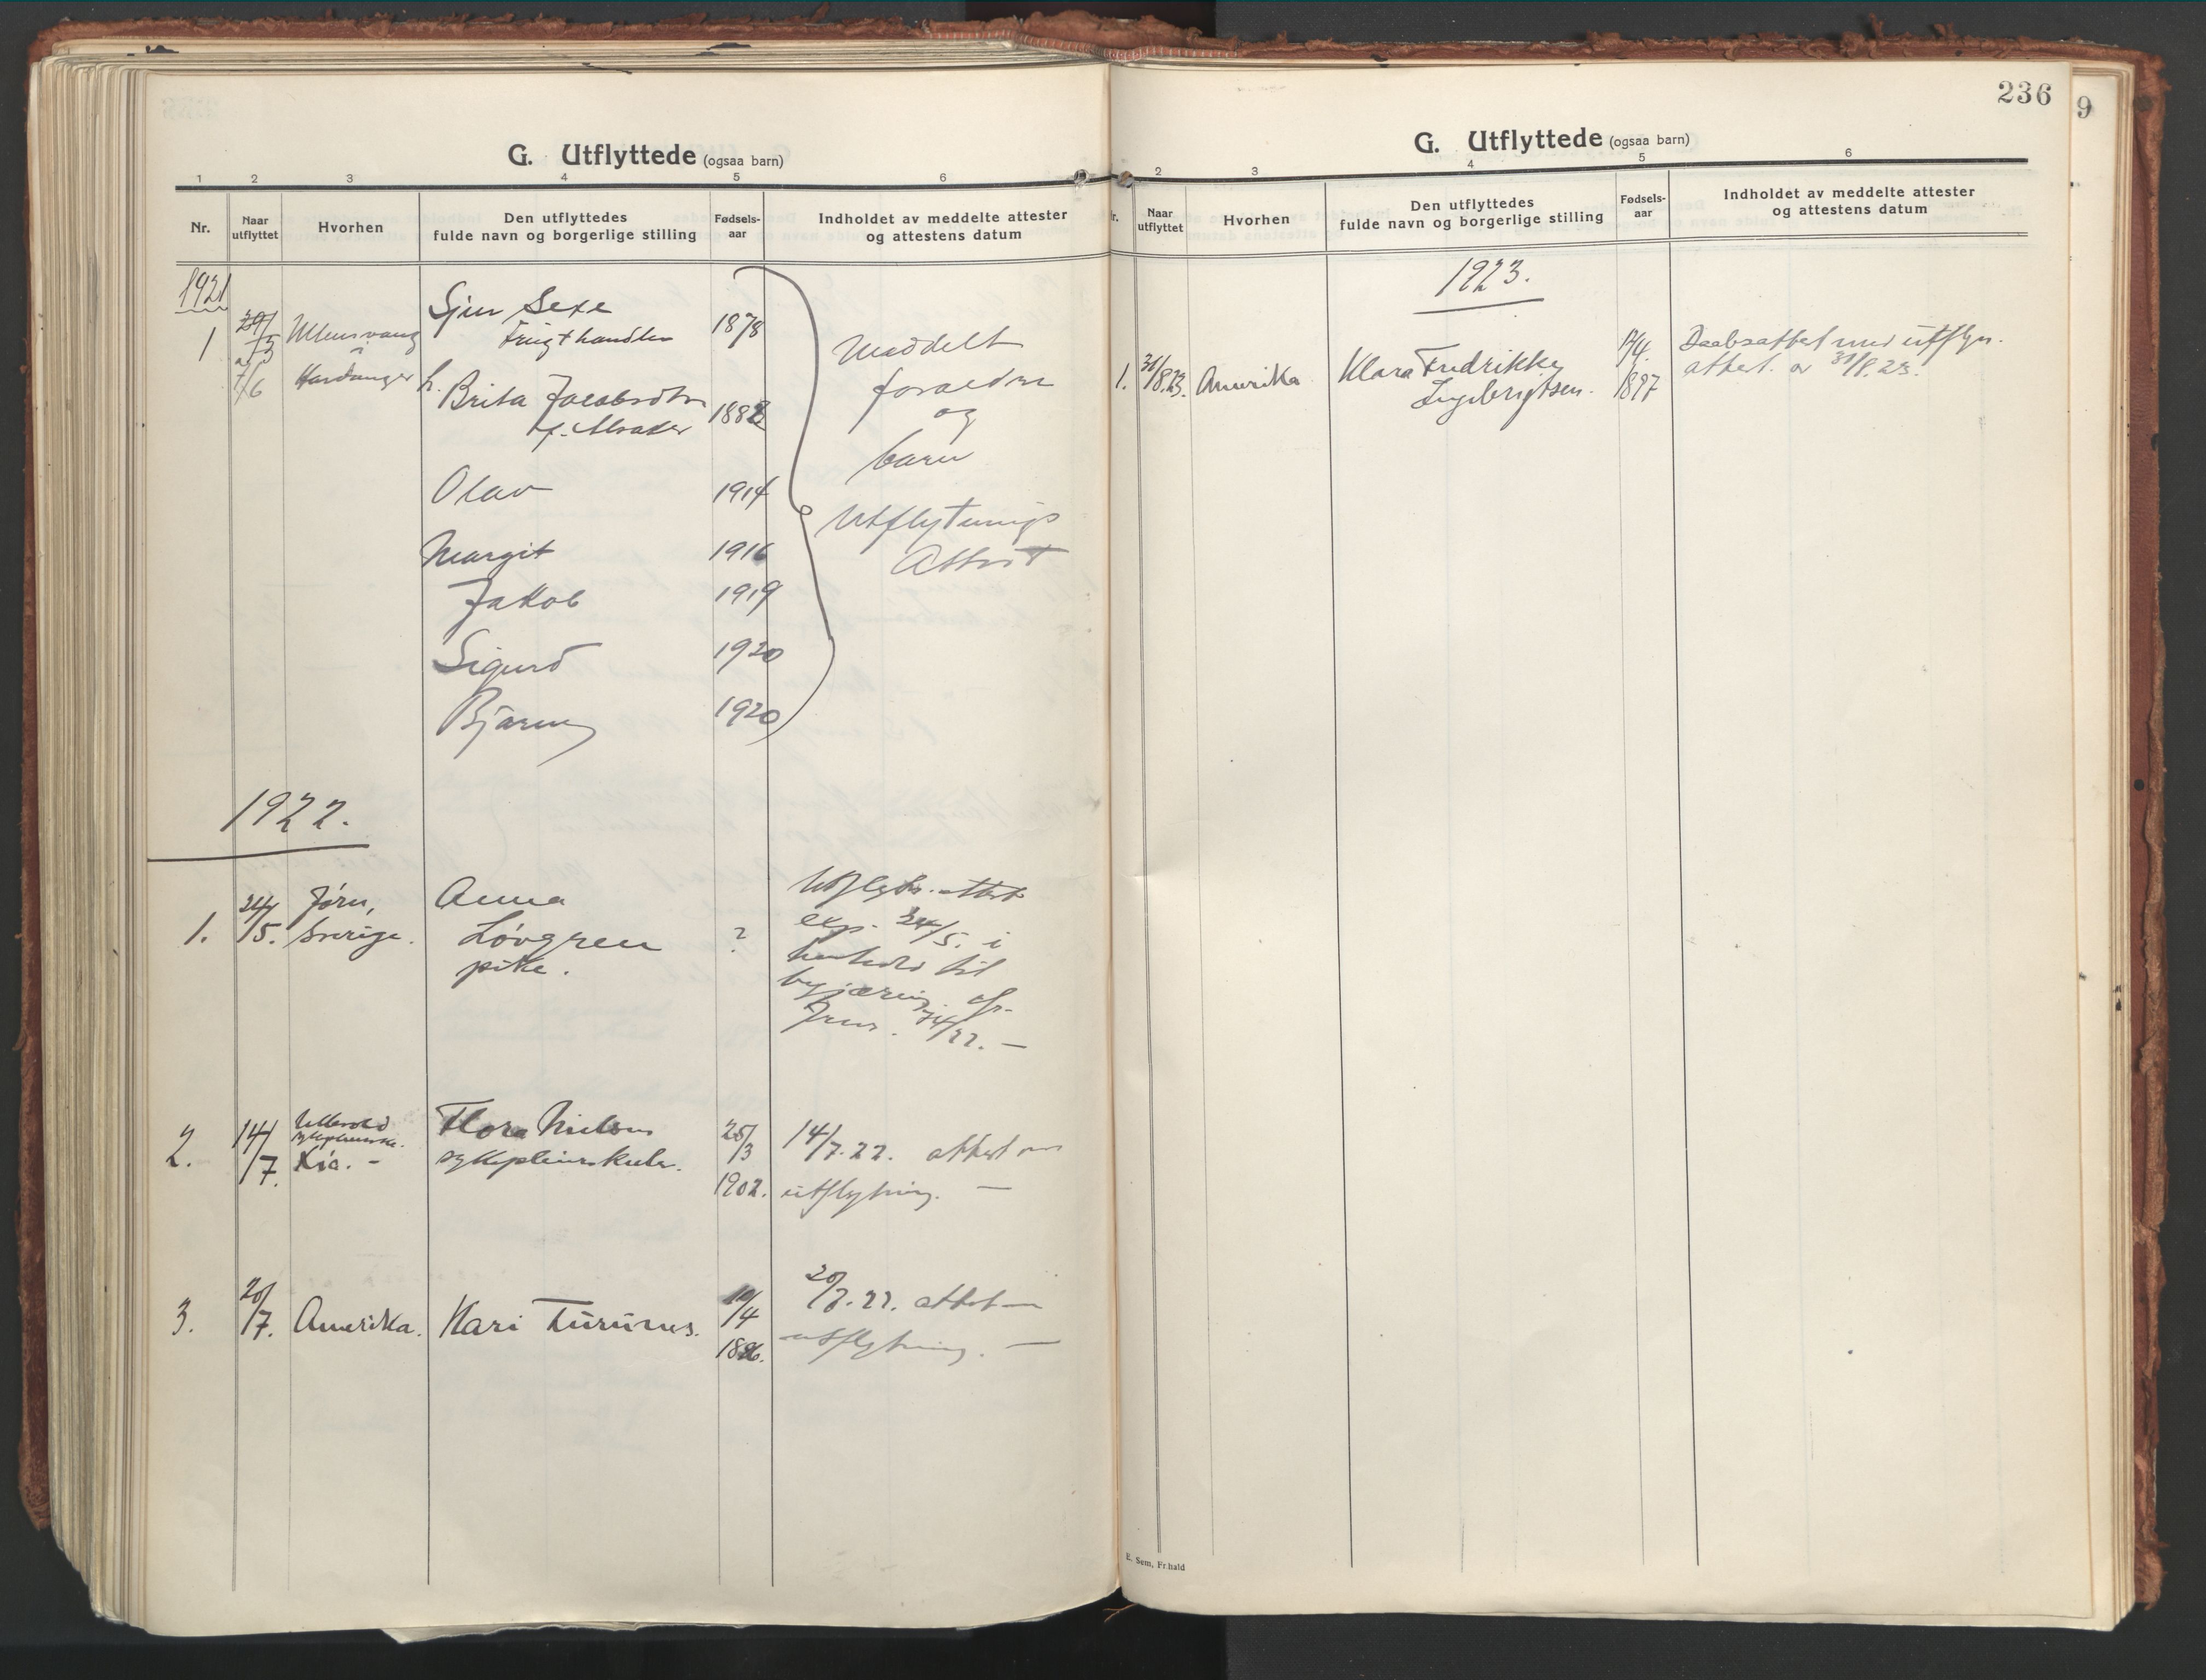 G. Utflyttede (ogsaa barn)
1 2 3 4 5 6
Nr. Naar utflyttet Hvorhen Den utflyttedes fulde navn og borgerlige stilling Fødsels-aar Indholdet av meddelte attester og attestens datum
1921
1 Ullensvang Sjur Sexe 1878
i Frugthandler
7/6 Hardanger h. Brita Jacobsdtr 1882
f. Alsaker
Olav 1914
Margit 1916
Jakob 1919
Sigurd 1920
Bjarne 1920
Meddelt
foraeldre
og
barn
Utflytnings
Attest
1922.
1. 24/5. Jørn, Sverige. Anna Løvgren pike. ?
Utflytn. attest
exp. 24/5. i
henhold til
begjæring
2. 14/7. Ullevold Flora Nielsen 25/3 1902. 14/7.22. attest om
utflytning. —
3. 20/7. Amerika. Kari Turunes. 10/4 20/7.22. attest
utflytning. —
236
9
G. Utflyttede (ogsaa barn)
2 3 4 5 6
Nr. Naar utflyttet Hvorhen Den utflyttedes fulde navn og borgerlige stilling Fødsels-aar Indholdet av meddelte attester og attestens datum
1923.
1. 31/8.23. Amerika Klara Fredrikke Ingebrigtsen. 1897 Daabsattest med utflyn.
attest. av 31/8.23.
E. Sem, Fr.hald